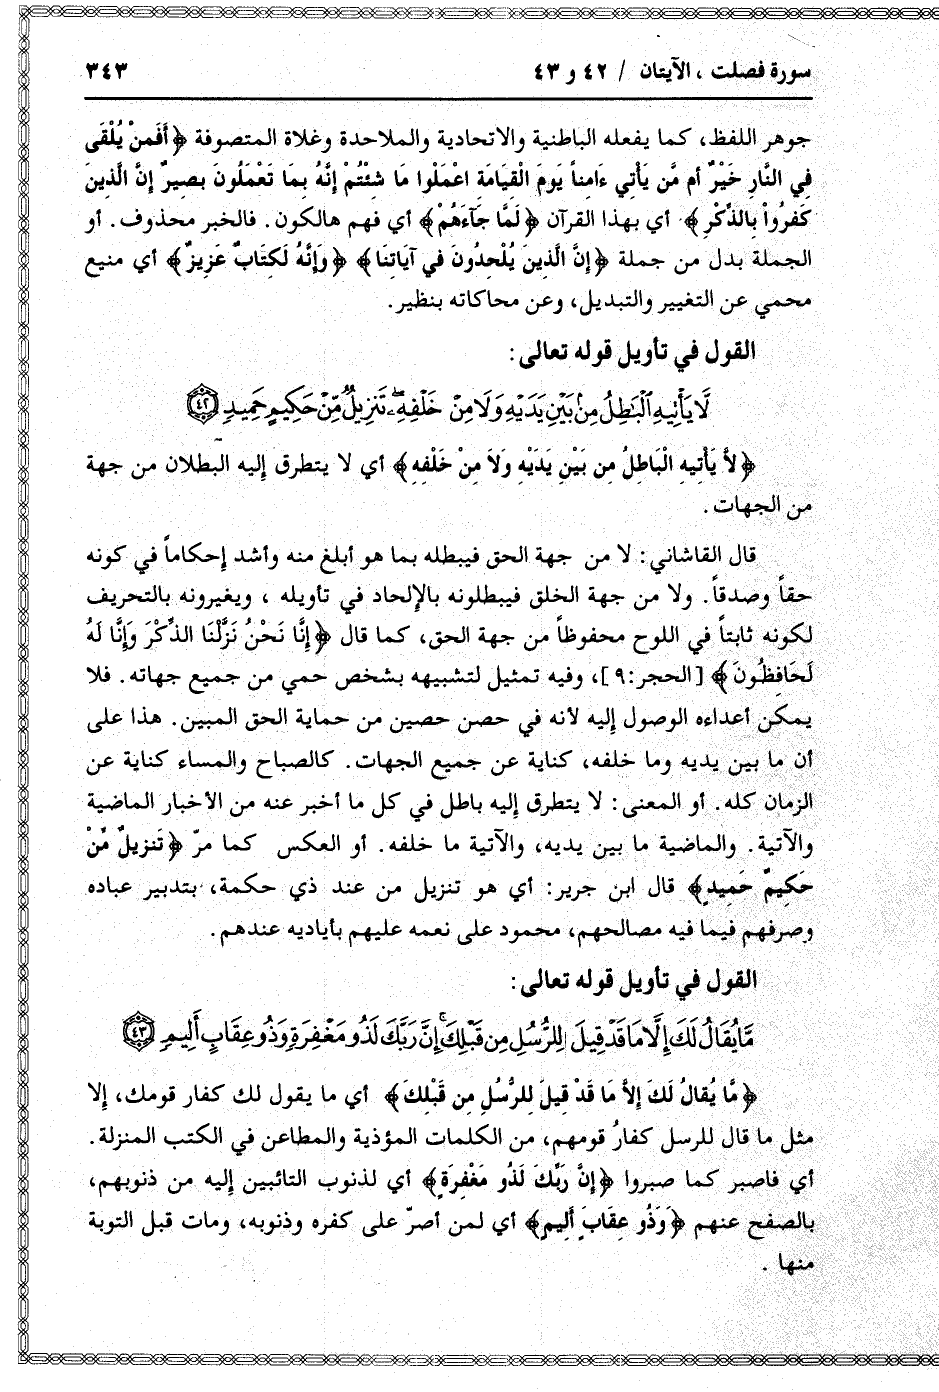 سورة فصلت ، الآيتان / ٤٢ و ٤٣ ٣٤٣
جوهر اللفظ، كما يفعله الباطنية والاتحادية والملاحدة وغلاة المتصوفة ﴿أَفَمنْ يُلْقَى
فِي النَّارِ خَيْرٌ أم مَّن يَأْتِي ءَامناً يَومَ الْقِيَامَة اعْمَلُوا مَا شئْتُمْ إنَّهُ بمَا تَعْمَلُونَ بَصيرٌ إنَّ الَّذينَ
كَفرُواْ بالذِّكْرِ﴾ أي بهذا القرآن ﴿لَمَّا جَآءَهُمْ﴾ أي فهم هالكون. فالخبر محذوف. أو
الجملة بدل من جملة ﴿إنَّ الَّذينَ يُلْحدُونَ في آيَاتنَا﴾ ﴿وَإنَّهُ لَكتَابٌ عَزيزٌ﴾ أي منيع
محمي عن التغيير والتبديل، وعن محاكاته بنظير.
القول في تأويل قوله تعالى:
لَّا يَأْتِيهِ الْبَاطِلُ مِنۢ بَيْنِ يَدَيْهِ وَلَا مِنْ خَلْفِهِۦ تَنزِيلٌ مِّنْ حَكِيمٍ حَمِيدٍ ٤٢
﴿لاَّ يَأْتيه الْبَاطلُ من بَيْنِ يَدَيْه وَلاَ منْ خَلْفه﴾ أي لا يتطرق إليه البطلان من جهة
من الجهات.
قال القاشاني: لا من جهة الحق فيبطله بما هو أبلغ منه وأشد إحكاماً في كونه
حقاً وصدقاً. ولا من جهة الخلق فيبطلونه بالإلحاد في تأويله ، ويغيرونه بالتحريف
لكونه ثابتاً في اللوح محفوظاً من جهة الحق، كما قال ﴿إنَّا نَحْنُ نَزَّلْنَا الذِّكْرَ وَإنَّا لَهُ
لَحَافظُونَ﴾ [الحجر:٩]، وفيه تمثيل لتشبيهه بشخص حمي من جميع جهاته. فلا
يمكن أعداءه الوصول إليه لأنه في حصن حصين من حماية الحق المبين. هذا على
أن ما بين يديه وما خلفه، كناية عن جميع الجهات. كالصباح والمساء كناية عن
الزمان كله. أو المعنى: لا يتطرق إليه باطل في كل ما أخبر عنه من الأخبار الماضية
والآتية. والماضية ما بين يديه، والآتية ما خلفه. أو العكس كما مرّ ﴿تَنزيلٌ مِّنْ
حَكيمٍ حَميدٍ﴾ قال ابن جرير: أي هو تنزيل من عند ذي حكمة، بتدبير عباده
وصرفهم فيما فيه مصالحهم، محمود على نعمه عليهم بأياديه عندهم.
القول في تأويل قوله تعالى:
مَّا يُقَالُ لَكَ إِلَّا مَا قَدْ قِيلَ لِلرُّسُلِ مِن قَبْلِكَ ۚ إِنَّ رَبَّكَ لَذُو مَغْفِرَةٍ وَذُو عِقَابٍ أَلِيمٍ ٤٣
﴿مَّا يُقالُ لَكَ إلاَّ مَا قَدْ قيلَ للرُّسُلِ من قَبْلكَ﴾ أي ما يقول لك كفار قومك، إلا
مثل ما قال للرسل كفارُ قومهم، من الكلمات المؤذية والمطاعن في الكتب المنزلة.
أي فاصبر كما صبروا ﴿إنَّ رَبَّكَ لَذُو مَغْفرَةٍ﴾ أي لذنوب التائبين إليه من ذنوبهم،
بالصفح عنهم ﴿وَذُو عقَابٍ أليمٍ﴾ أي لمن أصرّ على كفره وذنوبه، ومات قبل التوبة
منها .